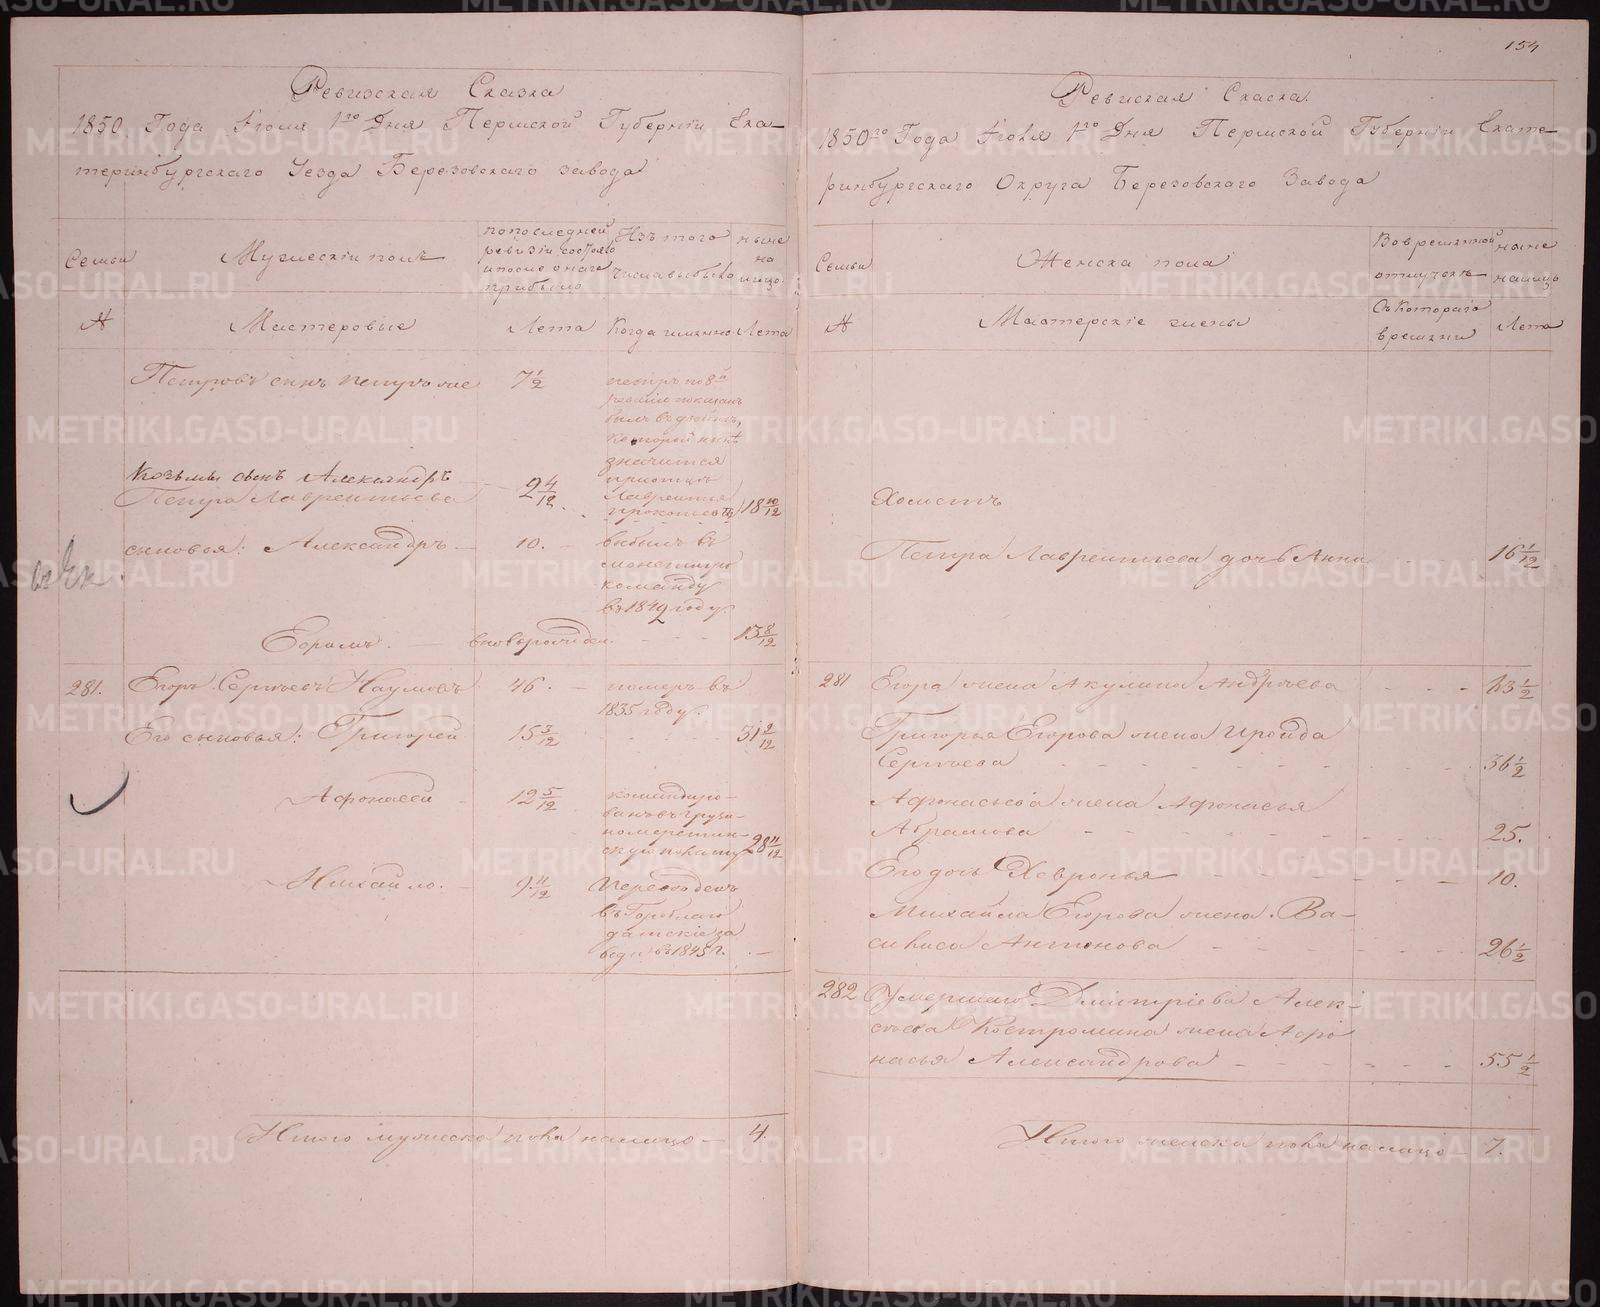 154
Ревизская Сказка
1850 Года Июля 1го Дня Пермской Губернiи Ека-
теринбургскаго Уезда Березовскаго завода
Семьи
Мужескiй полъ
попоследней
ревизiи состояло
ипосле онаго
прибыло
Изъ того
числа выбыло
ныне
на
лицо.
№
Мастеровые
Лета
Когда имянно
Лета
Петровъ сынъ
7 1/2
петръ по 8й
ревизiи показанъ
былъ
которой нынѣ
значится
Козьмы сынъ Александръ
Петра Лаврентьева
9 4/12
Лаврентiя
18 10/12
сыновья: Александръ
10.
выбылъ въ
команду
въ 1842 году.
Ефремъ.
вновьрожденъ.
13 8/12
281.
Егоръ Сергеевъ Наумовъ
46.
померъ въ
1835 году.
Его сыновья: Григорей
15 3/12
31 9/12
Афонасей
12 5/12
командиро-
28 11/12
Михайло.
9 11/12
Переведенъ
въ Горблаго
датскiе за
воды въ 1845 г.
Итого мужеска пола налицо — 4.
Ревиская Скаска.
1850го Года Июля 1го Дня Пермской Губернiи Екате-
ринбургскаго Округа Березовскаго Завода
Семьи
Женска пола
Вовременной
отлучкѣ
ныне
налицо
№
Мастерскiе жены
Съ Котораго
времени
Лета
Холостъ
Петра Лаврентьева дочь Анна
16 1/12
281
Егора жена Акулина Андреева
63 1/2
Григорья Егорова жена Ироида
Сергеева
36 1/2
Афонасьева жена Афонасья
Абрамова
25.
Его дочь Хавронья
10.
Михайла Егорова жена Ва-
силиса Антонова
26 1/2
282
Умершаго Дмитрiева Алек-
сеева Костромина жена Афо
насья Александрова
55 1/2
Итого женска пола налицо — 7.
METRIKI.GASO-URAL.RU